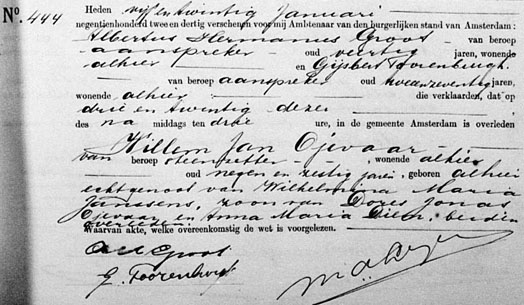 Nº. 444
Heden vijf en twintig Januari
negentienhonderd twee en dertig verschenen voor mij Ambtenaar van den burgerlijken stand van Amsterdam:
Albertus Hermanus Groot - van beroep
aanspreker - oud veertig jaren, wonende
alhier en Gijsbert Toorenburgh
van beroep aanspreker oud
wonende alhier die verklaarden, dat op
drie en twintig dezer
des na middags ten drie ure, in de gemeente Amsterdam is overleden
Willem Jan Ojevaar
van beroep steenzetter - , wonende alhier
oud negen en zestig jaren, geboren alhier
echtgenoot van Wilhelmina Maria
Janssens, zoon van Dores Jonas
Ojevaar en Anna Maria beiden
overleden
Waarvan akte, welke overeenkomstig de wet is voorgelezen.
Groot
G. Toorenburgh